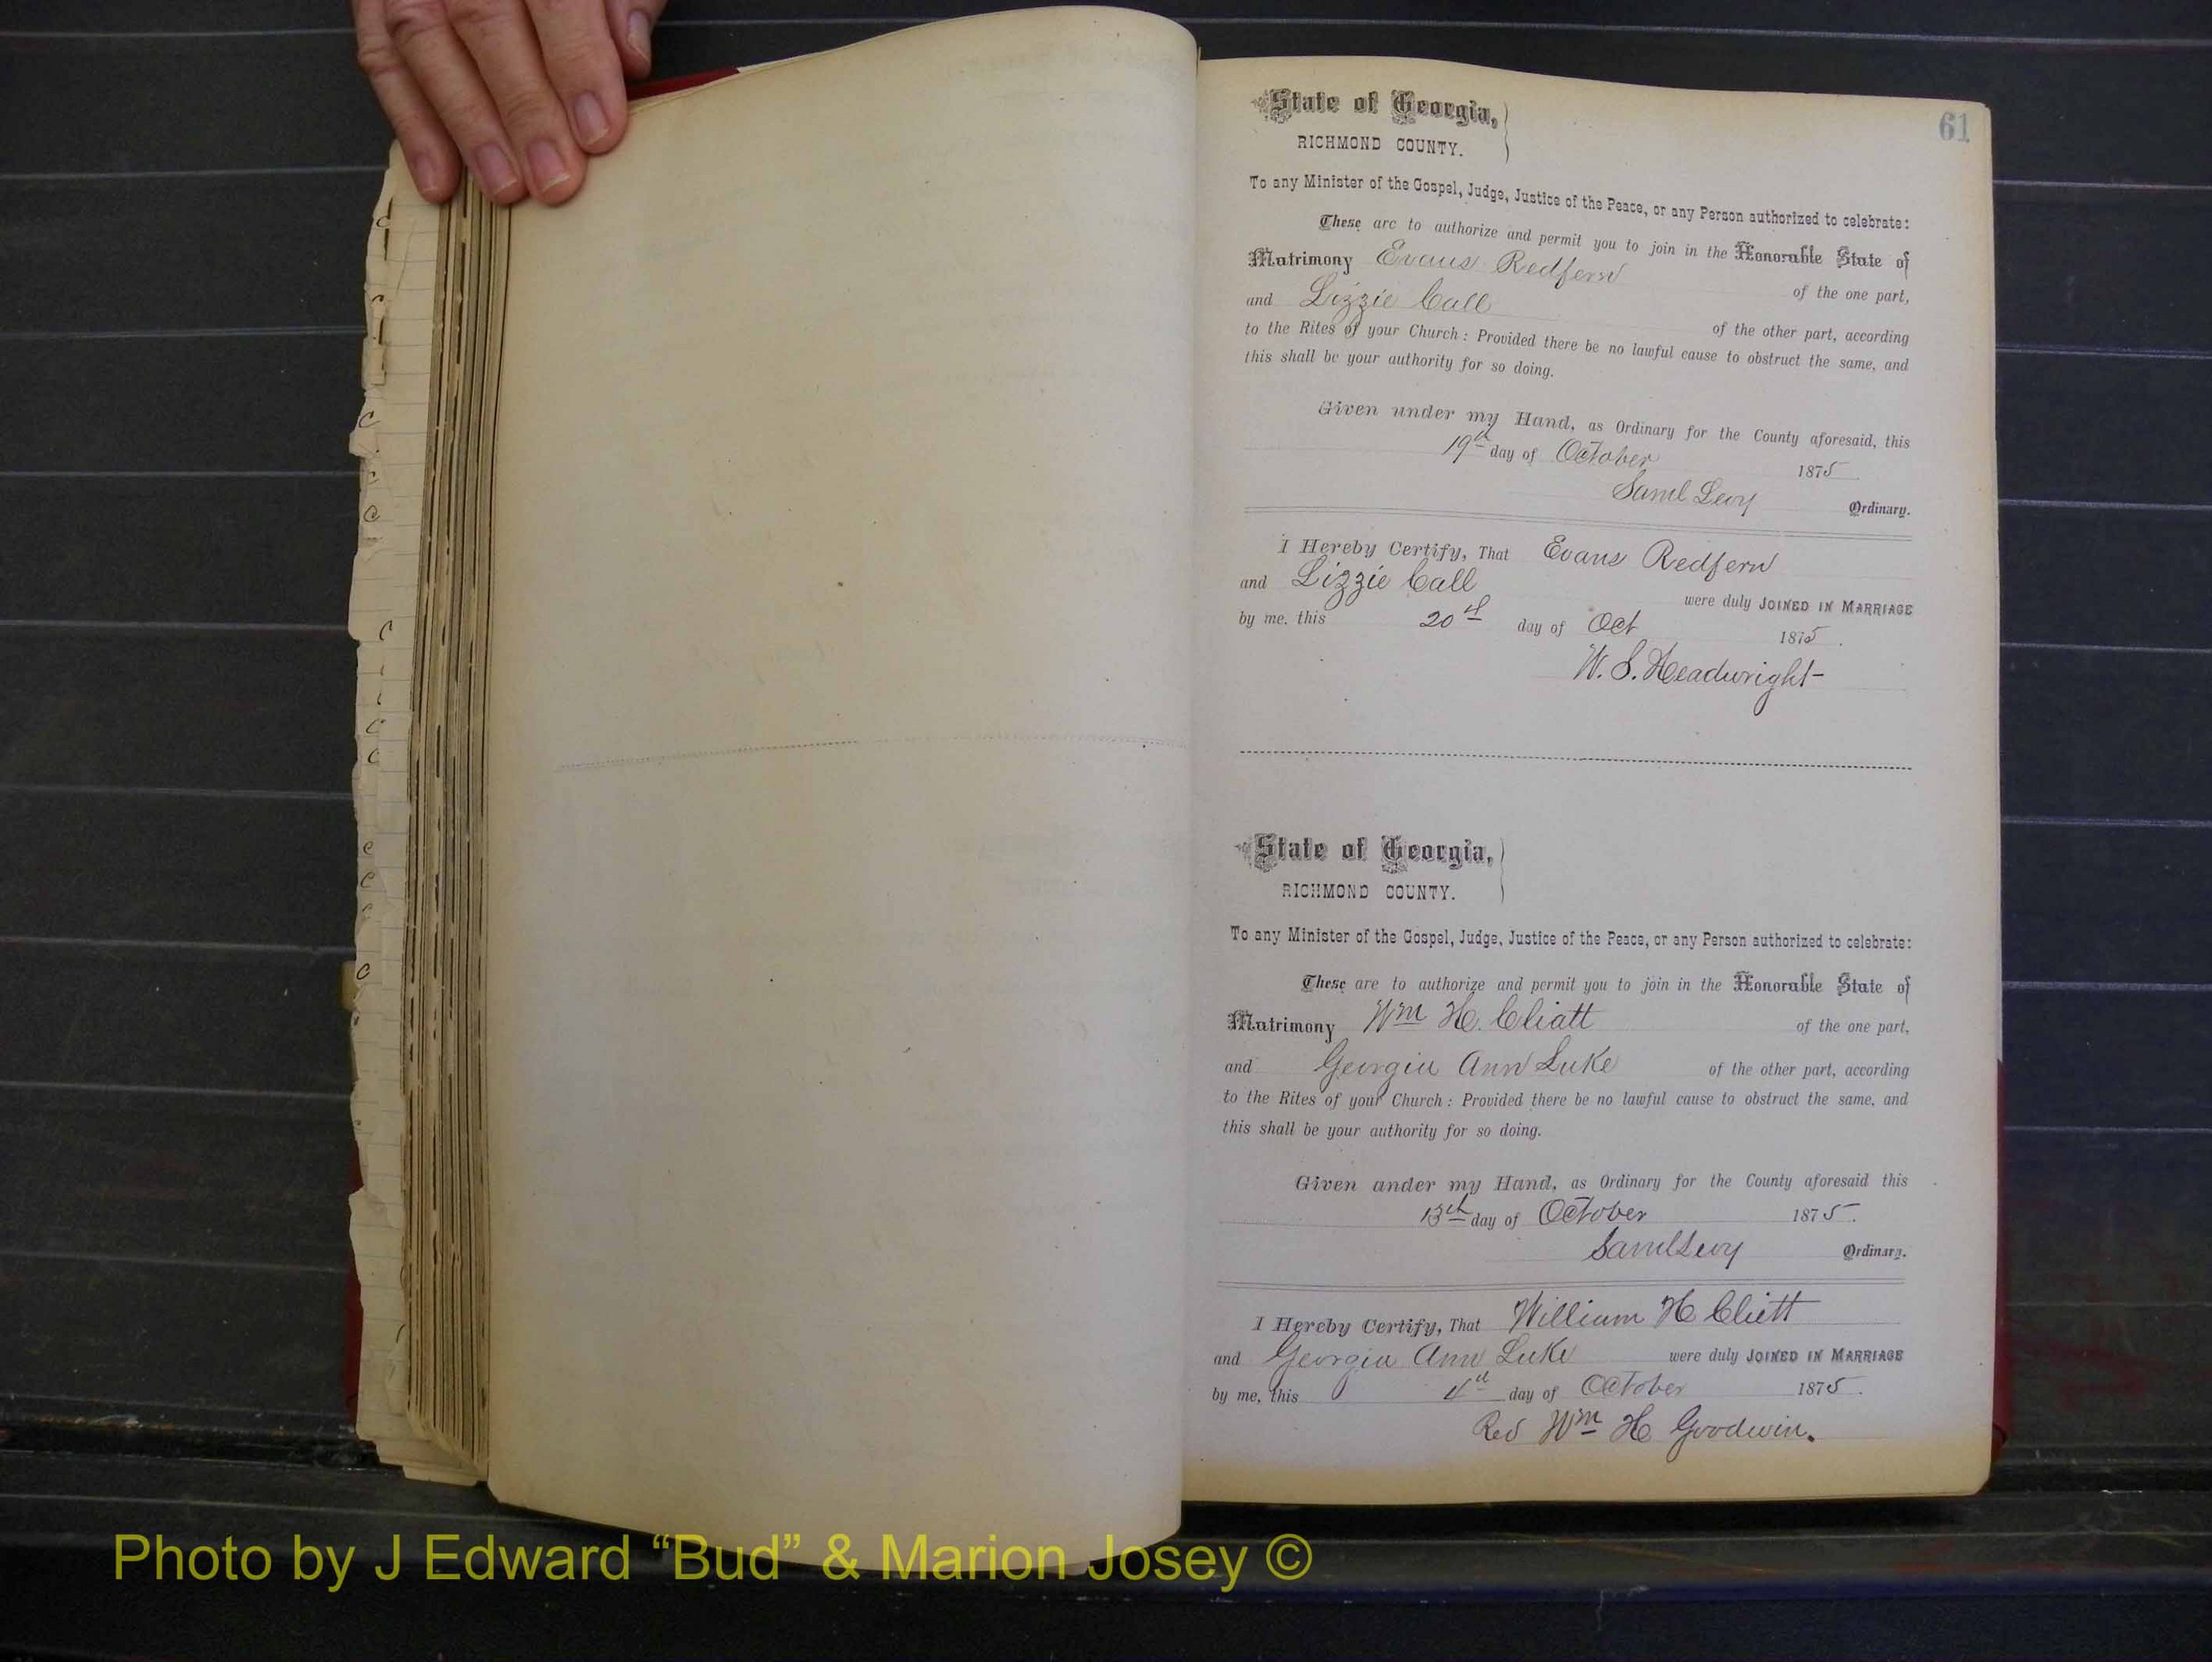 61
State of Georgia,
RICHMOND COUNTY.
To any Minister of the Gospel, Judge, Justice of the Peace, or any Person authorized to celebrate:
These are to authorize and permit you to join in the Honorable State of
Matrimony Evans Redfern of the one part,
and Lizzie Call of the other part, according
to the Rites of your Church: Provided there be no lawful cause to obstruct the same, and
this shall be your authority for so doing.
Given under my Hand, as Ordinary for the County aforesaid, this
19th day of October 1875
Saml Levy Ordinary.
I Hereby Certify, That Evans Redfern
and Lizzie Call were duly JOINED IN MARRIAGE
by me, this 20th day of Oct 1875.
W. S. Headwright
State of Georgia,
RICHMOND COUNTY.
To any Minister of the Gospel, Judge, Justice of the Peace, or any Person authorized to celebrate:
These are to authorize and permit you to join in the Honorable State of
Matrimony Wm H. Cliatt of the one part,
and Georgia Ann Luke of the other part, according
to the Rites of your Church: Provided there be no lawful cause to obstruct the same, and
this shall be your authority for so doing.
Given under my Hand, as Ordinary for the County aforesaid this
13th day of October 1875.
Saml Levy Ordinary.
I Hereby Certify, That William H Cliett
and Georgia Ann Luke were duly JOINED IN MARRIAGE
by me, this day of October 1875.
Rev Wm H Goodwin.
Photo by J Edward “Bud” & Marion Josey ©